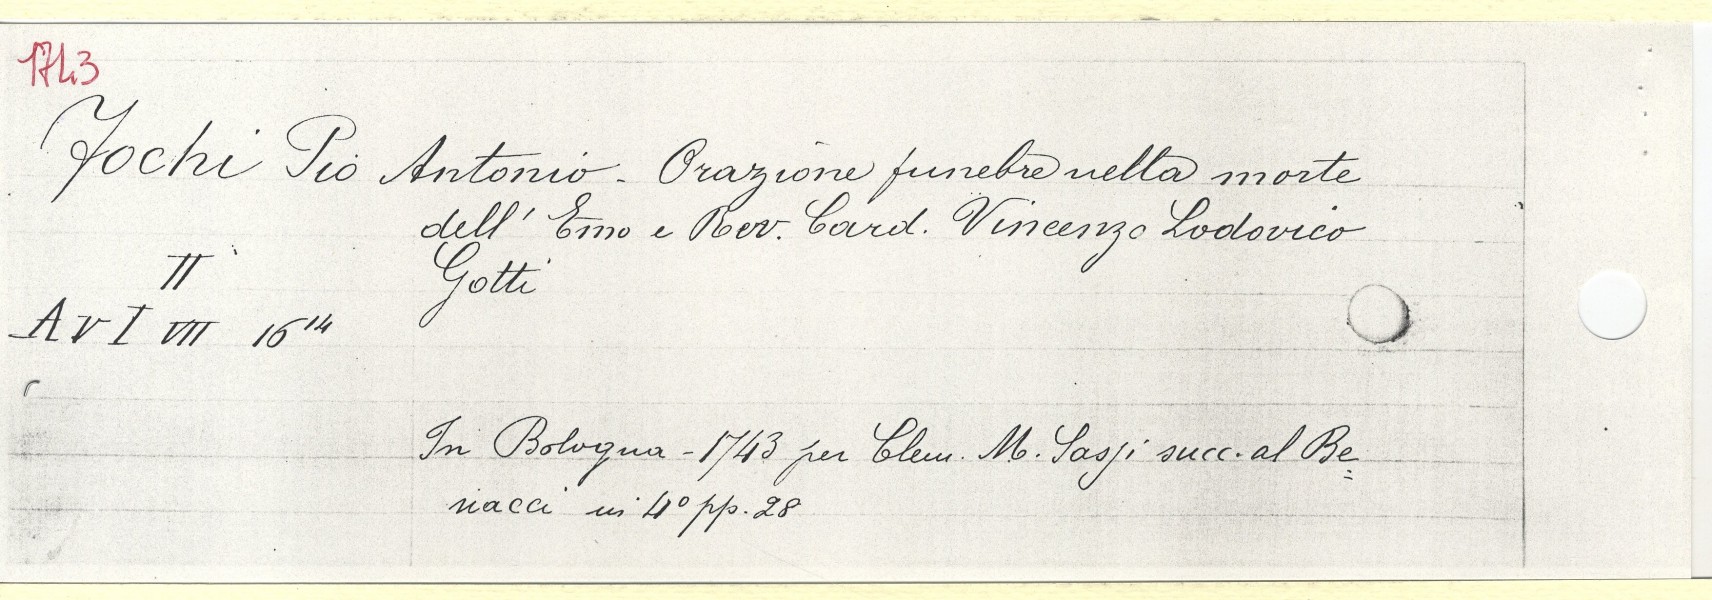 1743
Jochi Pio Antonio - Orazione funebre nella morte
dell' Emo e Rev. Card. Vincenzo Lodovico
Gotti
II
A V I VII 16 14
In Bologna - 1743 per Clem. M. Sassi succ. al Be=
nacci in 4° pp. 28